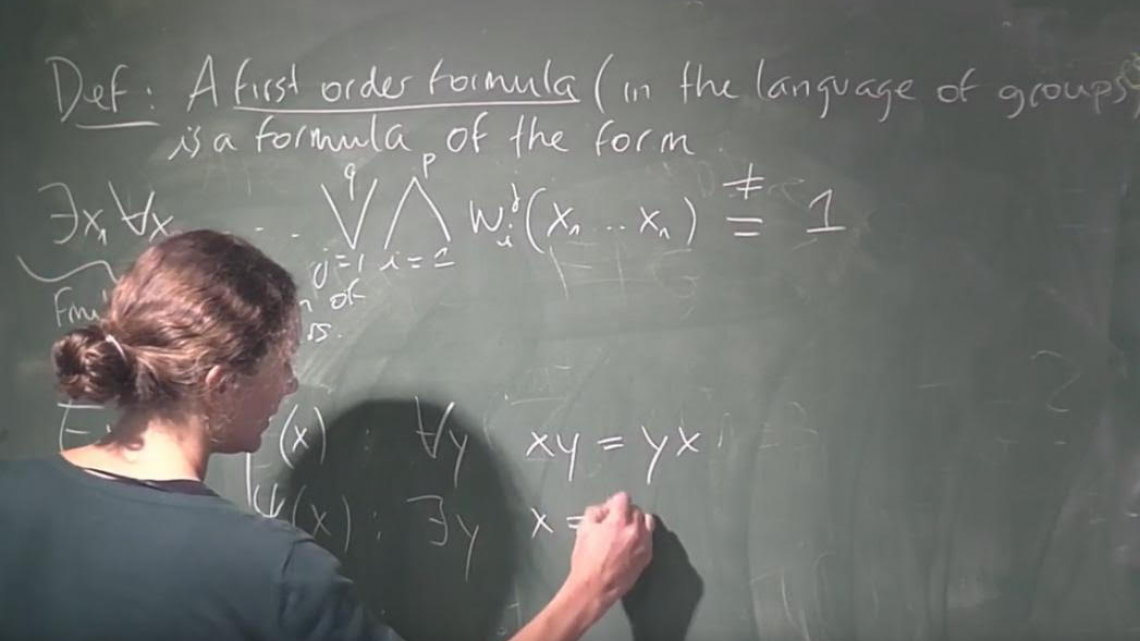 Def: A first order formula (in the language of groups)
is a formula of the form
∃x₁ ∀x ... ⋁_{j=1}^{q} ⋀_{i=1}^{p} w_i^j(x₁ ... xₙ) ≠ = 1
of
(x) : ∀y xy = yx
ψ(x) : ∃y x =